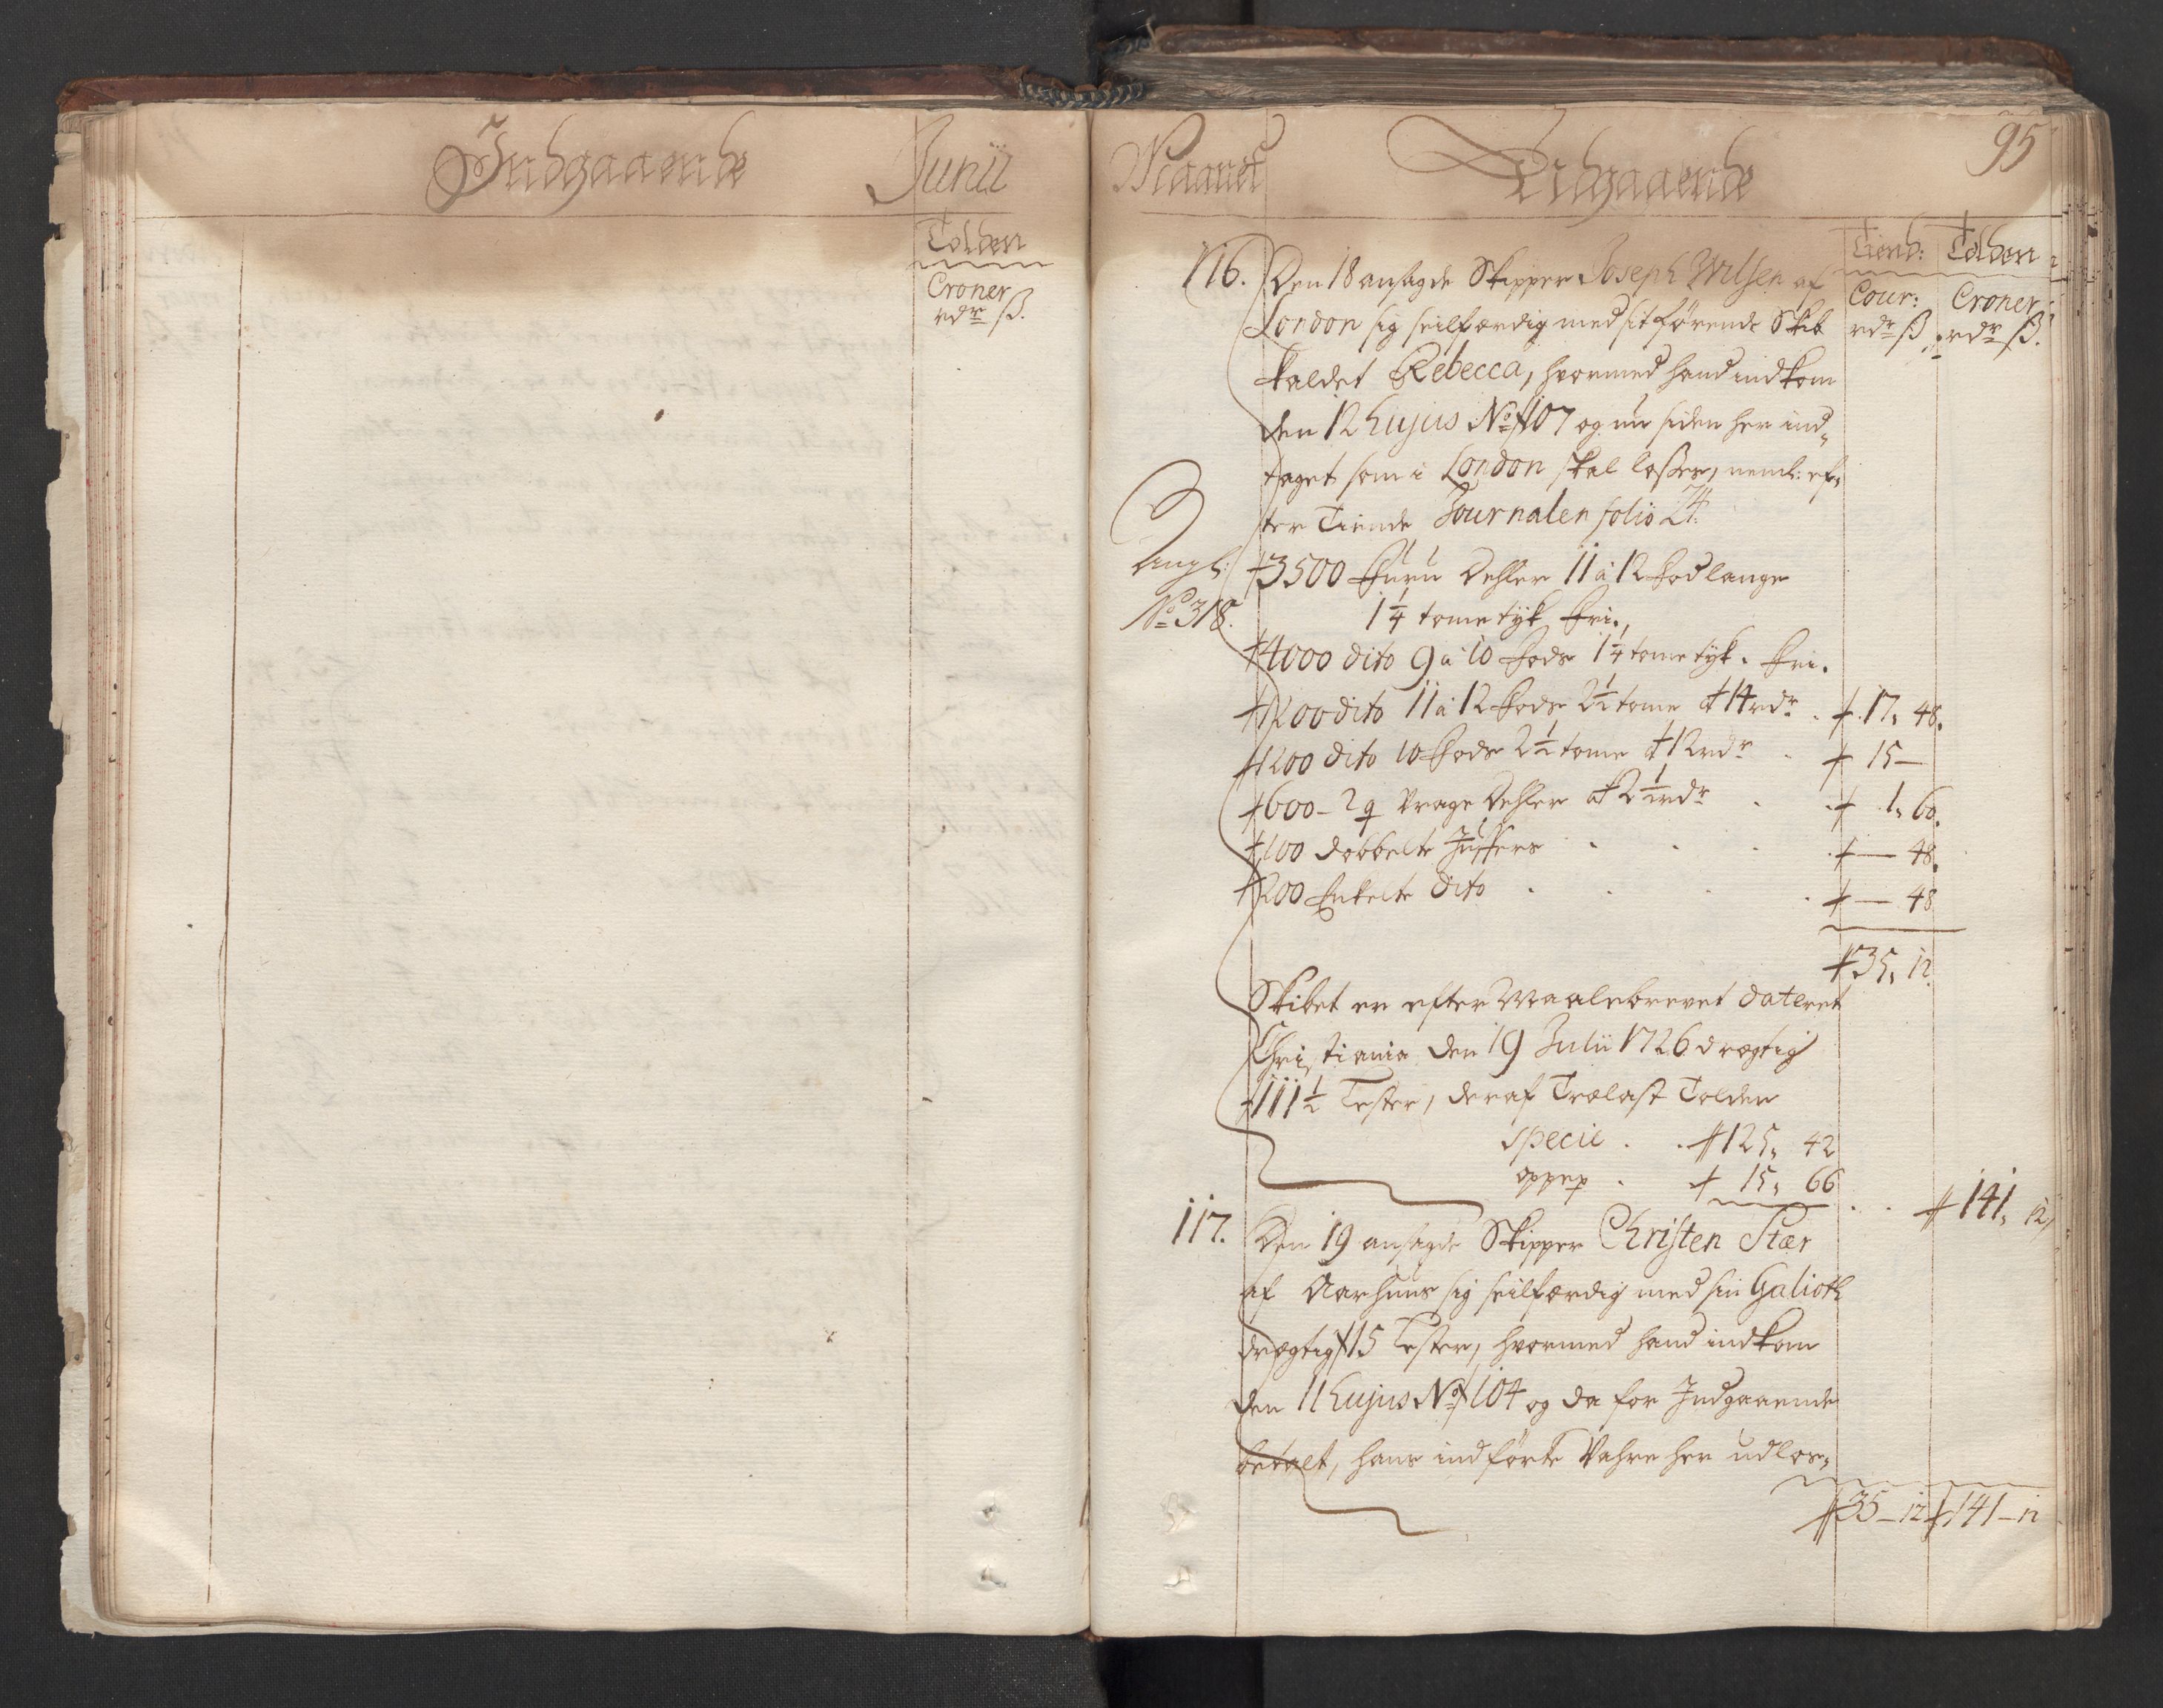 Indgaaende
Junii
Tolden
Croner
rdr ß.
Maanet
Udgaaende
95
Tiend: Tolden
Cour: Croner
rdr ß rdr ß.
116. Den 18 ansagde Skipper Joseph Wilsen af
London sig seilfærdig med sit førende Skib
kaldet Rebecca, hvormed hand indkom
den 12 hujus No 107 og nu siden her ind-
taget som i London skal losses, neml: ef-
ter Tiende Journalen folio 24.
Angl:
No 318.
3500 Furu Dehler 11 a 12 Fod lange
1 1/4 tome tyk fri.
4000 dito 9 a 10 Fods 1 1/4 tome tyk. fri.
1200 dito 11 a 12 Fods 2 1/2 tome at 14 rdr . 17, 48.
1200 dito 10 Fods 2 1/2 tome at 12 rdr . 15 —
600 - Vrage Dehler at 2 1/2 rdr . . 1, 60.
100 dobbelte Juffers . . . . — 48.
200 Enkelte dito . . . . — 48
35, 12.
Skibet er efter Maalebrevet dateret
Christiania den 19 Julii 1726 drægtig
111 1/2 Lester, deraf Trælast Tolden
specie . . 125, 42
oppep . 15, 66
. . 141, 12,
117. Den 19 ansagde Skipper Christen Stær
af Aarhuus sig seilfærdig med sin Galioth
drægtig 15 Lester, hvormed hand indkom
den 11 hujus No 104 og da for Indgaaende
betalt, hans indførte Vahre her udlos-
35 - 12 141 - 12